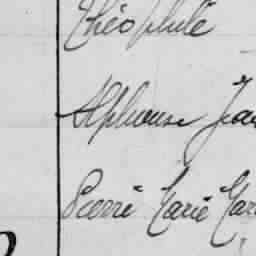 Théophile
Alphonse Jean
Pierre Marie Mar